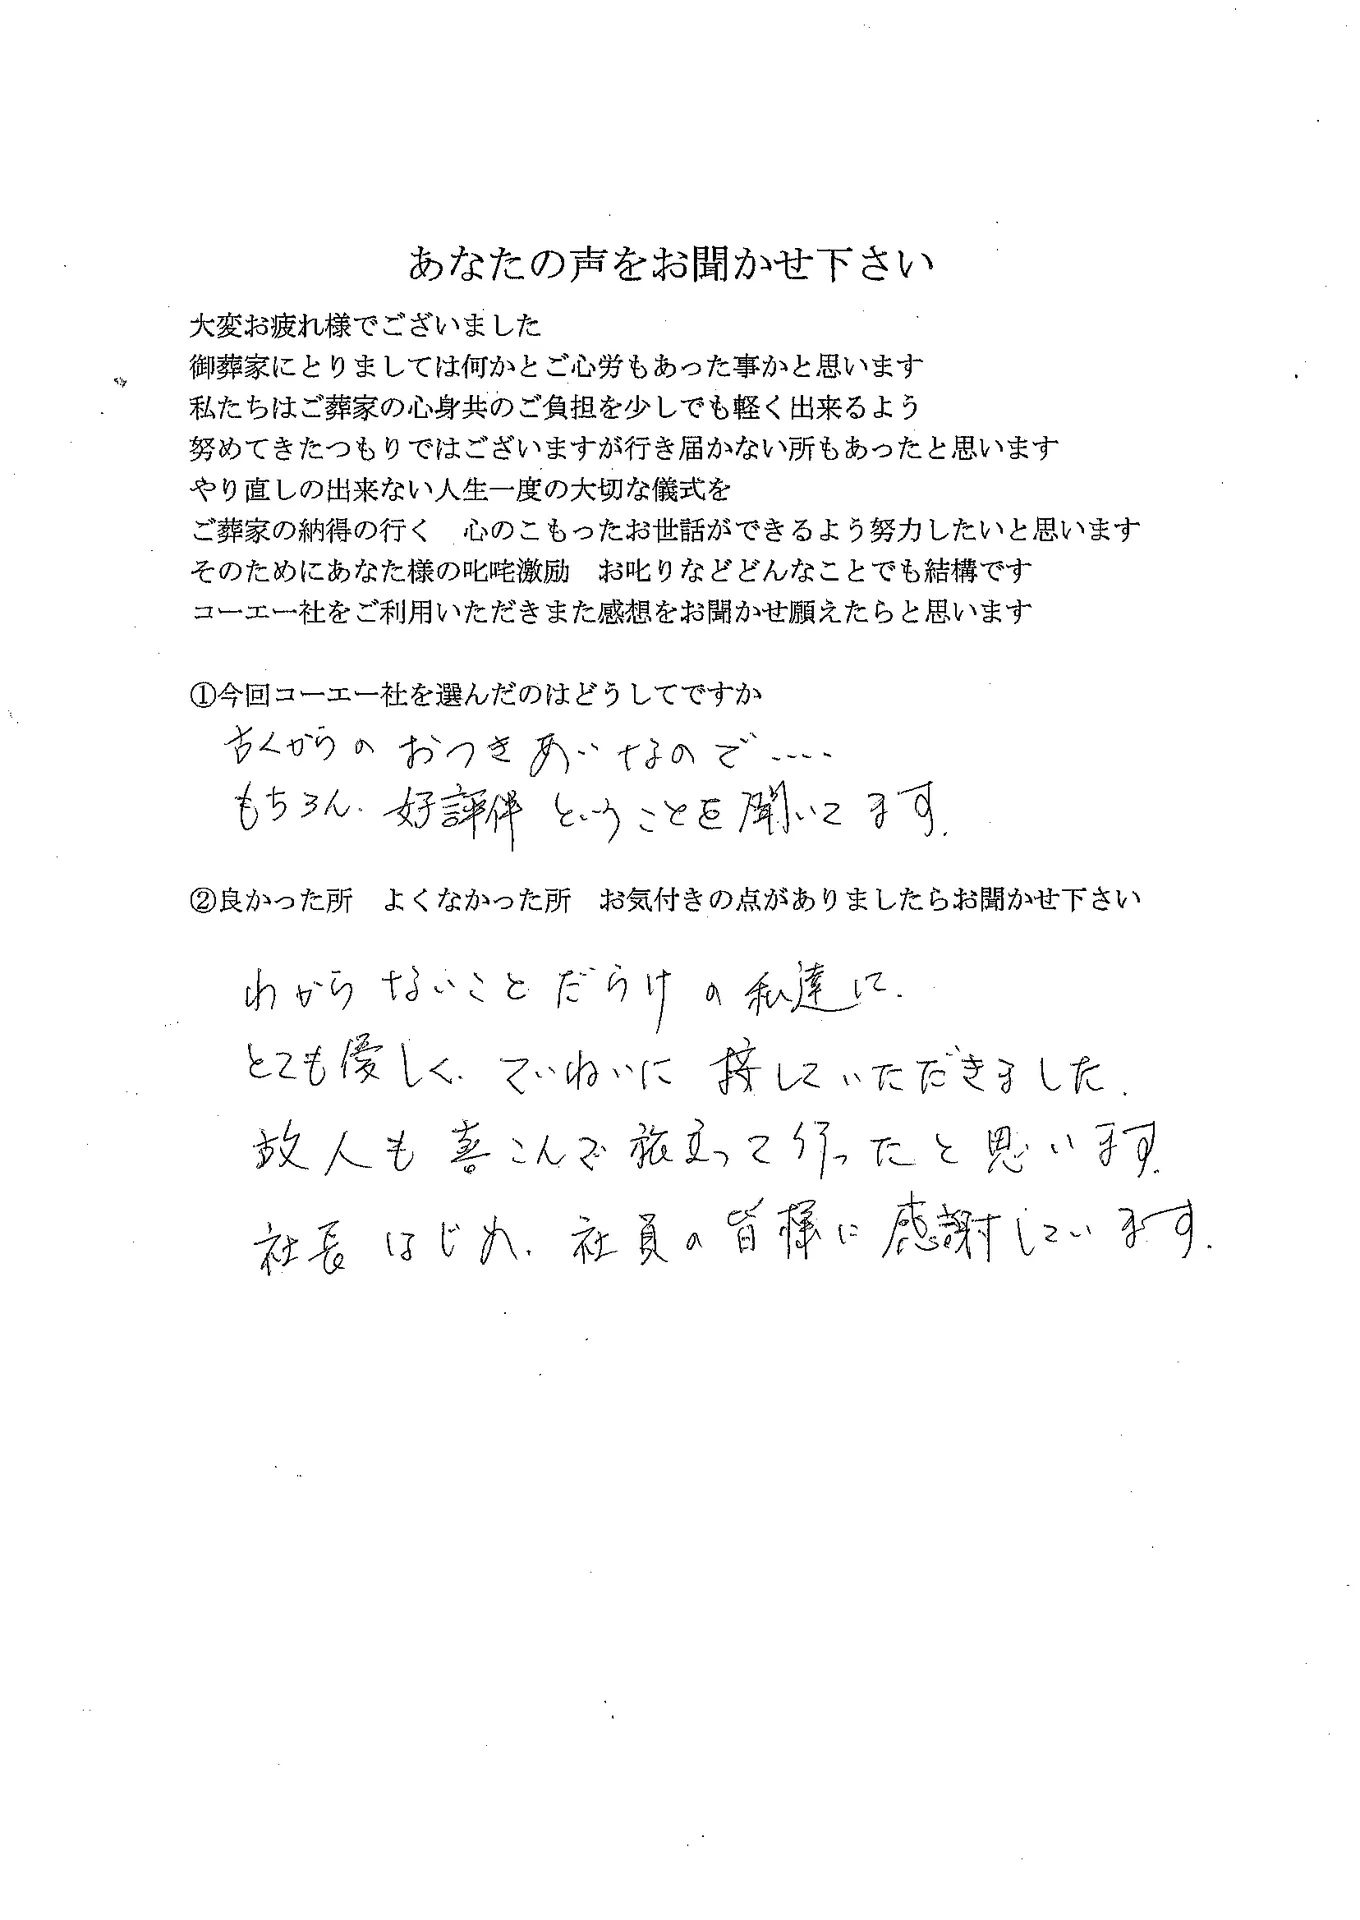 あなたの声をお聞かせ下さい
大変お疲れ様でございました
御葬家にとりましては何かとご心労もあった事かと思います
私たちはご葬家の心身共のご負担を少しでも軽く出来るよう
努めてきたつもりではございますが行き届かない所もあったと思います
やり直しの出来ない人生一度の大切な儀式を
ご葬家の納得の行く　心のこもったお世話ができるよう努力したいと思います
そのためにあなた様の叱咤激励　お叱りなどどんなことでも結構です
コーエー社をご利用いただきまた感想をお聞かせ願えたらと思います
①今回コーエー社を選んだのはどうしてですか
古くからの おつきあいなので‥‥
もちろん、好評伴 ということを聞いてます。
②良かった所　よくなかった所　お気付きの点がありましたらお聞かせ下さい
わからないことだらけの私達に、
とても優しく、ていねいに 接していただきました。
故人も喜こんで旅立って行ったと思います。
社長はじめ、社員の皆様に感謝しています。